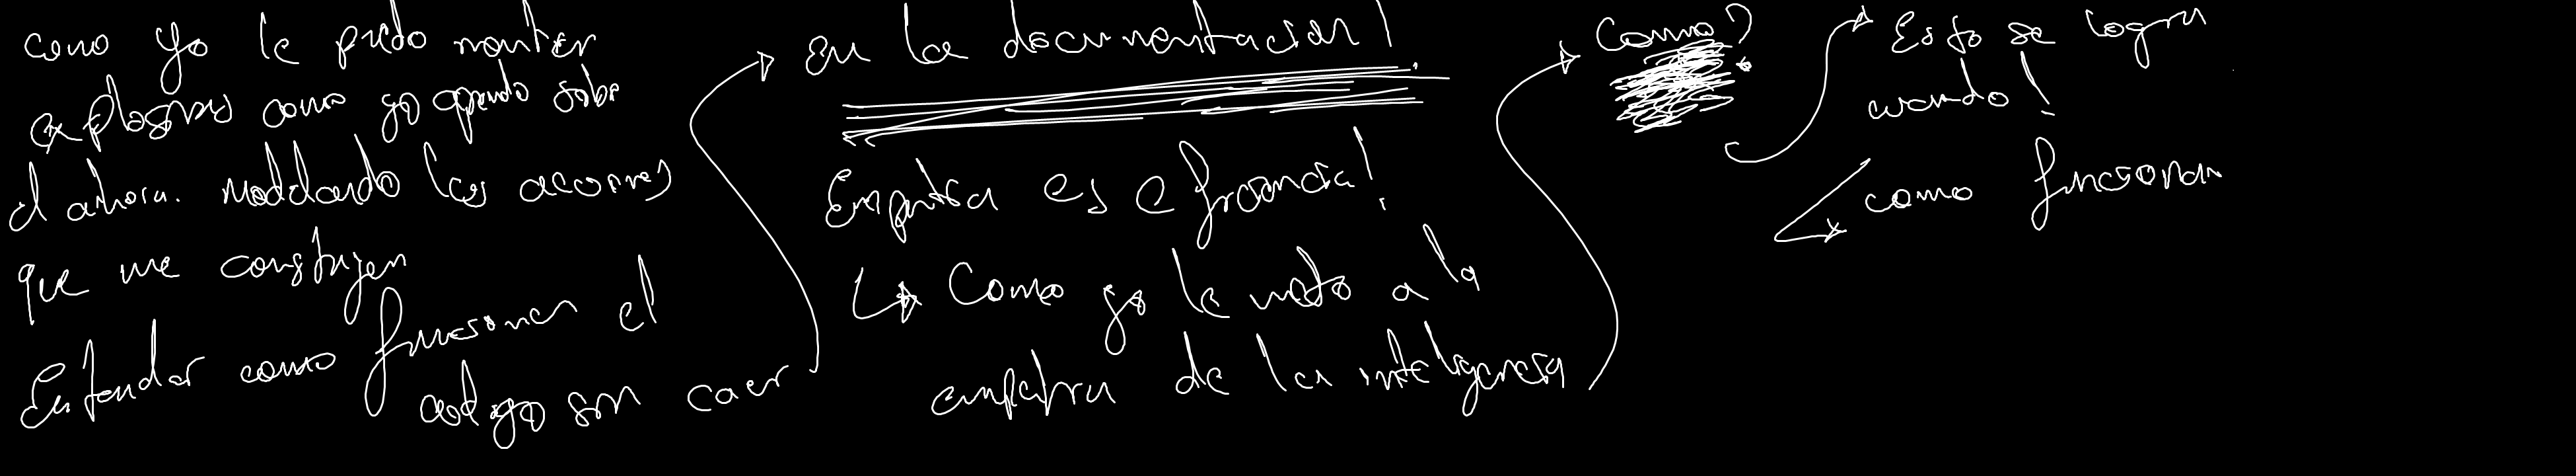 como yo le puedo montar
explosivos como yo aprendo sobre
el ahora. Modelando las acciones
que me construyen
Entender como funcionan el
codigo sin caer
en la documentacion!
Empatia es eficiencia!
Como yo le meto a la
empatia de la inteligencia
Como?
Esto se logra
cuando!
como funcionan